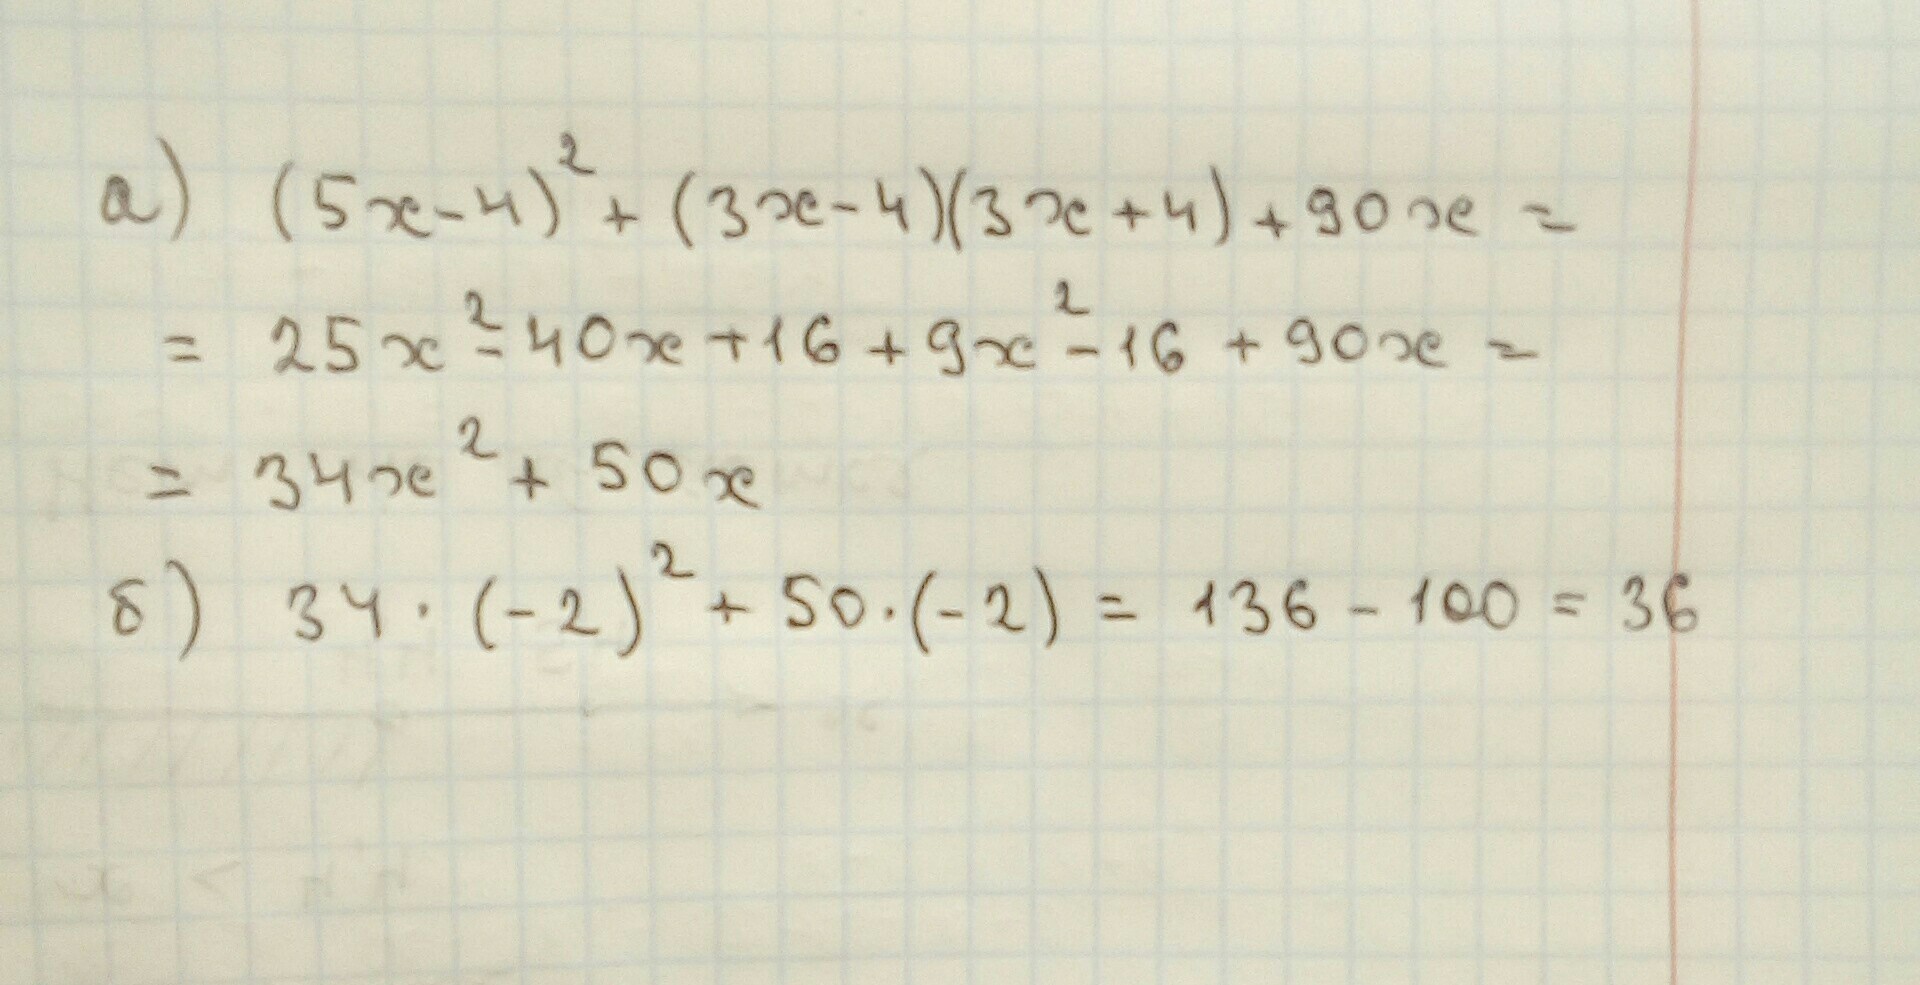 а) (5x-4)² + (3x-4)(3x+4) + 90x =
= 25x² - 40x + 16 + 9x² - 16 + 90x =
= 34x² + 50x
б) 34 · (-2)² + 50 · (-2) = 136 - 100 = 36